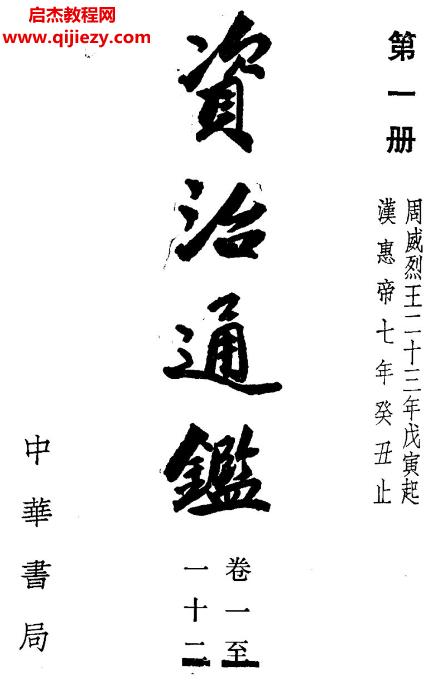 启杰教程网
www.qijiezy.com
第一册
周威烈王二十三年戊寅起
漢惠帝七年癸丑止
資治通鑑
卷一至
一十二
中華書局